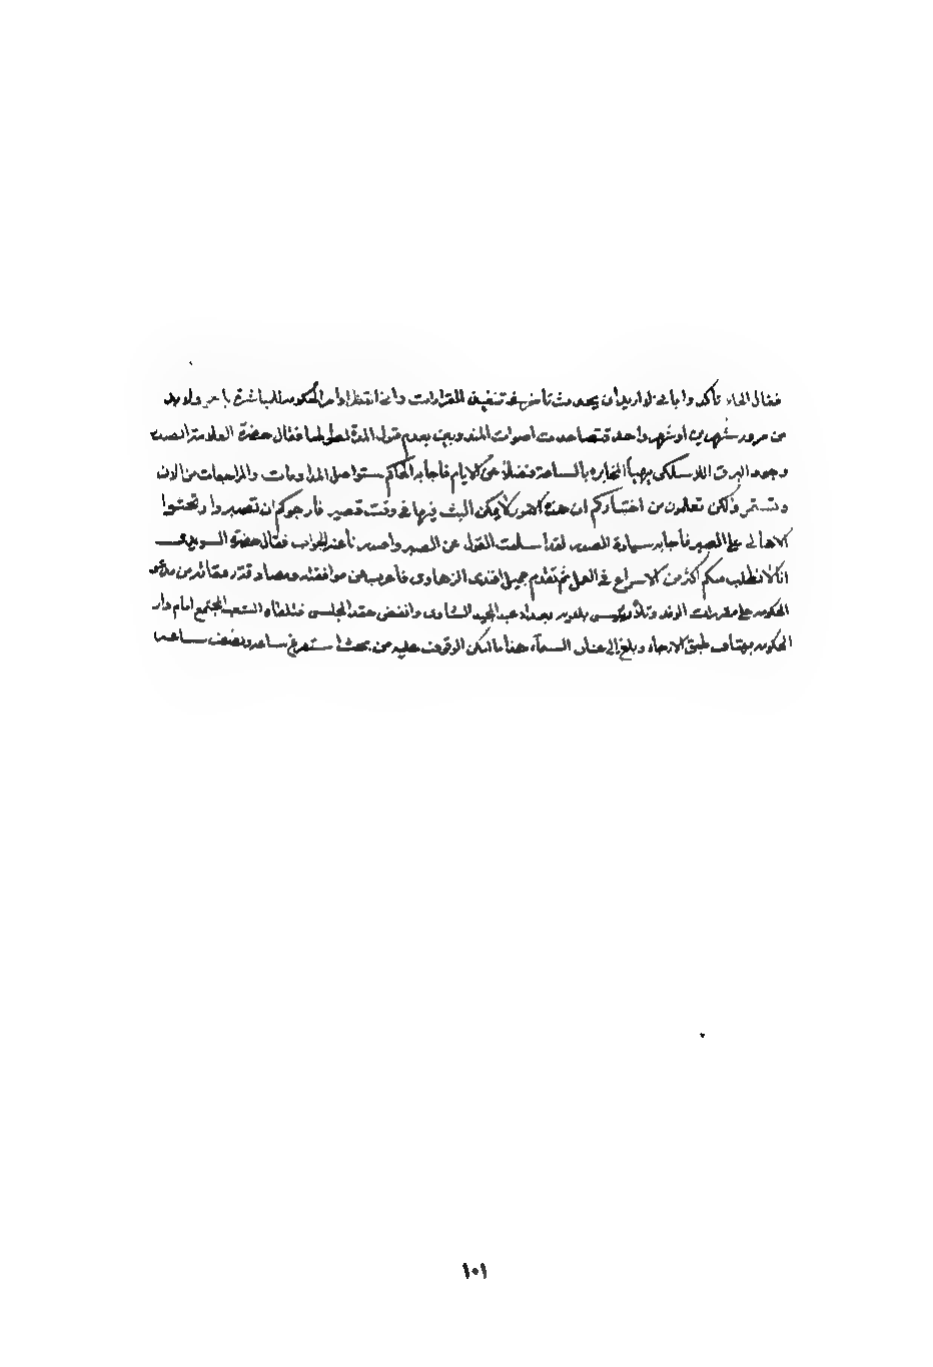 فقال الحاكم تأكدوا باني لا اريد أن يحدث تأخر في تنفيذ المقررات وانى انتظر اوامر الحكومة للمباشرة ولابد
من مرور شهرين او شهر واحد فتصاعدت اصوات المندوبين بعدم قبول المدة لطولها فقال حضرة العلامة الصدر
وجود البرق اللاسلكى يهيأ المخابره بالساعة فضلاً عن الايام فأجابه الحاكم ستواصل المداومات والمراجعات من الان
وتستمر ولكن تعلمون من اختباركم ان هذه الامور لا يمكن البث فيها في وقت قصير فأرجوكم ان تصبروا وتحثوا
الاهالى على الصبر فأجابه سيادة الصدر لقد اسلفت القول عن الصبر واصدر نا عنه الجواب فقال حضرة السويدى
اننا لا نطلب منكم اكثر من الاسراع في العمل ثم تقدم جميل افندى الزهاوى فأعرب عن موافقته ومصادقته
الحكومة على مقررات الوفد وتلاه بغداد عبد المجيد الشاوى وانفض عقد المجلس فتلقاه الشعب المجتمع امام دار
الحكومة بهتاف طبق الارجاء وبلغ الى عنان السماء هذا ما امكن الوقوف عليه من بحث استغرق ساعة ونصف ساعة
١٠١